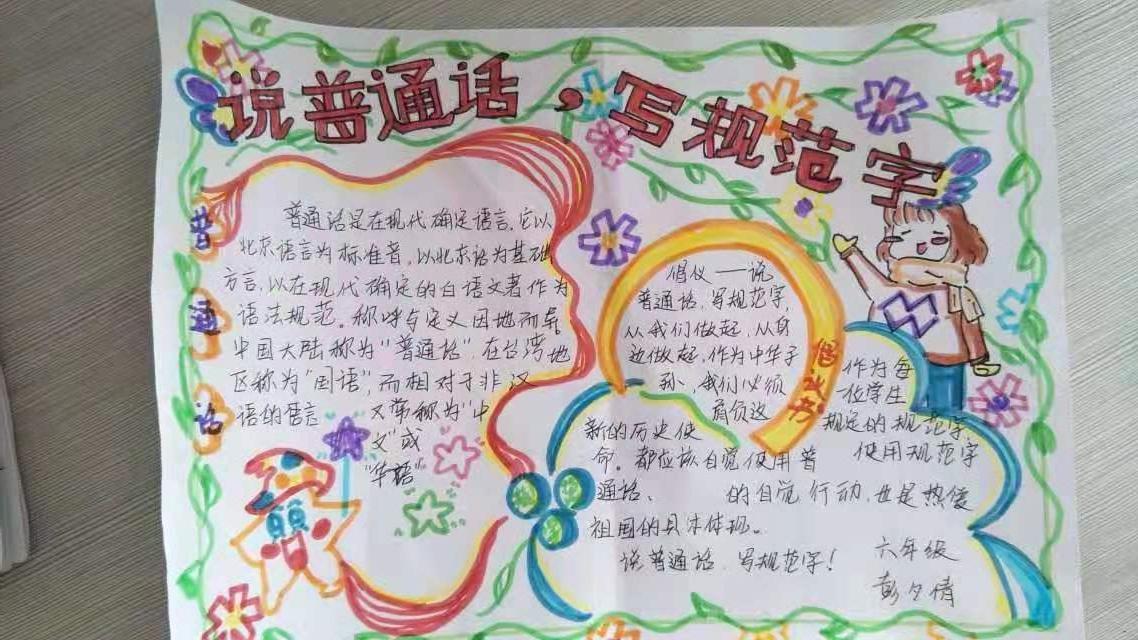 说普通话，写规范字
普通话
普通话是在现代确定语言，它以
北京语言为标准音，以北京话为基础
方言，以在现代确定的白话文著作为
语法规范。称呼与定义因地而异
中国大陆称为“普通话”，在台湾地
区称为“国语”，而相对于非汉
语的语言
又常称为“中
文”或
“华语”
倡仪——说
普通话，写规范字，
从我们做起，从身
边做起，作为中华子
孙、我们必须
肩负这
倡议书
新的历史使
命。都应该自觉使用普
通话、
作为每
一位学生
规定的规范字
使用规范字
的自觉行动，也是热爱
祖国的具体体现。
说普通话，写规范字！
六年级
彭夕倩